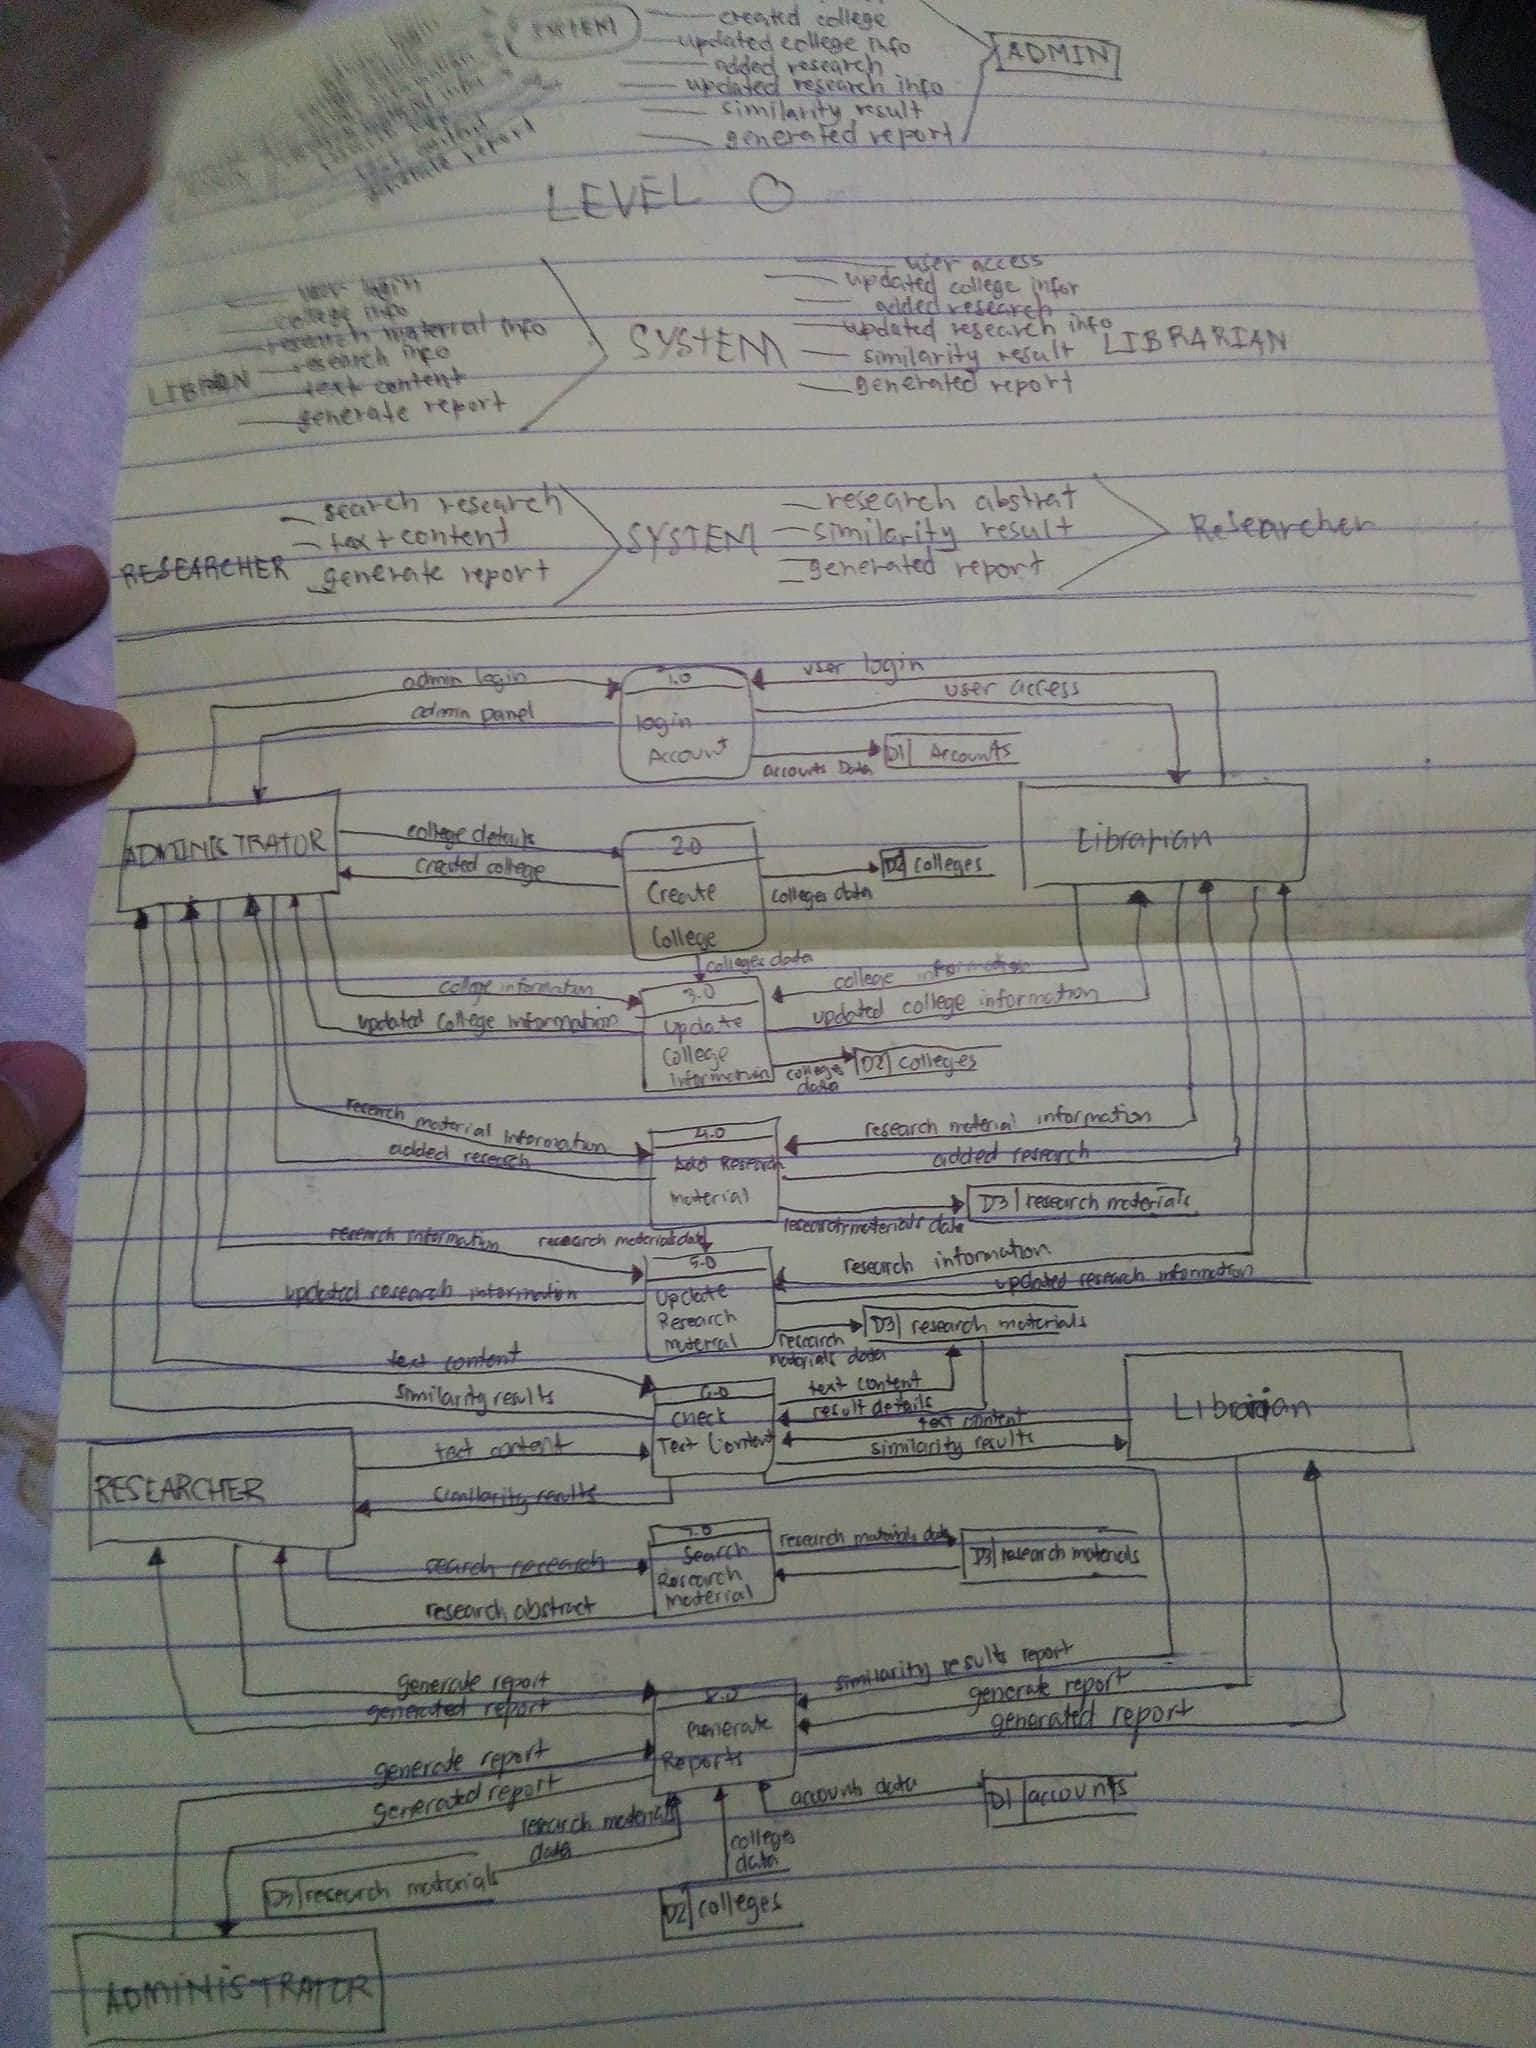 SYSTEM
created college
updated college info
added research
updated research info
similarity result
generated report
ADMIN
generate report
LEVEL 0
user login
college info
research material info
research info
text content
generate report
LIBRIAN
SYSTEM
user access
updated college infor
added research
updated research info
similarity result
generated report
LIBRARIAN
RESEARCHER
search research
text content
generate report
SYSTEM
research abstrat
similarity result
generated report
Researcher
admin login
admin panel
1.0
login
Account
user login
user access
accounts Data
D1 Accounts
ADMINISTRATOR
college details
created college
2.0
Create
College
colleges data
D2 colleges
Librarian
colleges data
college information
updated College Information
3.0
Update
College
Information
college information
updated college information
colleges data
D2 colleges
research material Information
added research
4.0
Add Research
material
research material information
added research
research materials data
D3 research materials
research information
research materials data
updated research information
5.0
Update
Research
material
research information
updated research information
research materials data
D3 research materials
text content
similarity results
6.0
Check
Text Content
text content
result details
text content
similarity results
Librarian
RESEARCHER
text content
similarity results
7.0
Search
Research
material
research materials data
D3 research materials
search research
research abstract
generate report
generated report
8.0
Generate
Reports
similarity results report
generate report
generated report
generate report
generated report
research materials
data
D3 research materials
colleges
data
D2 colleges
accounts data
D1 accounts
ADMINISTRATOR